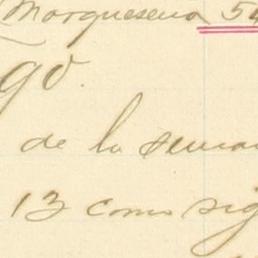 Marquesena 54
go.
de la seman
13 como sig